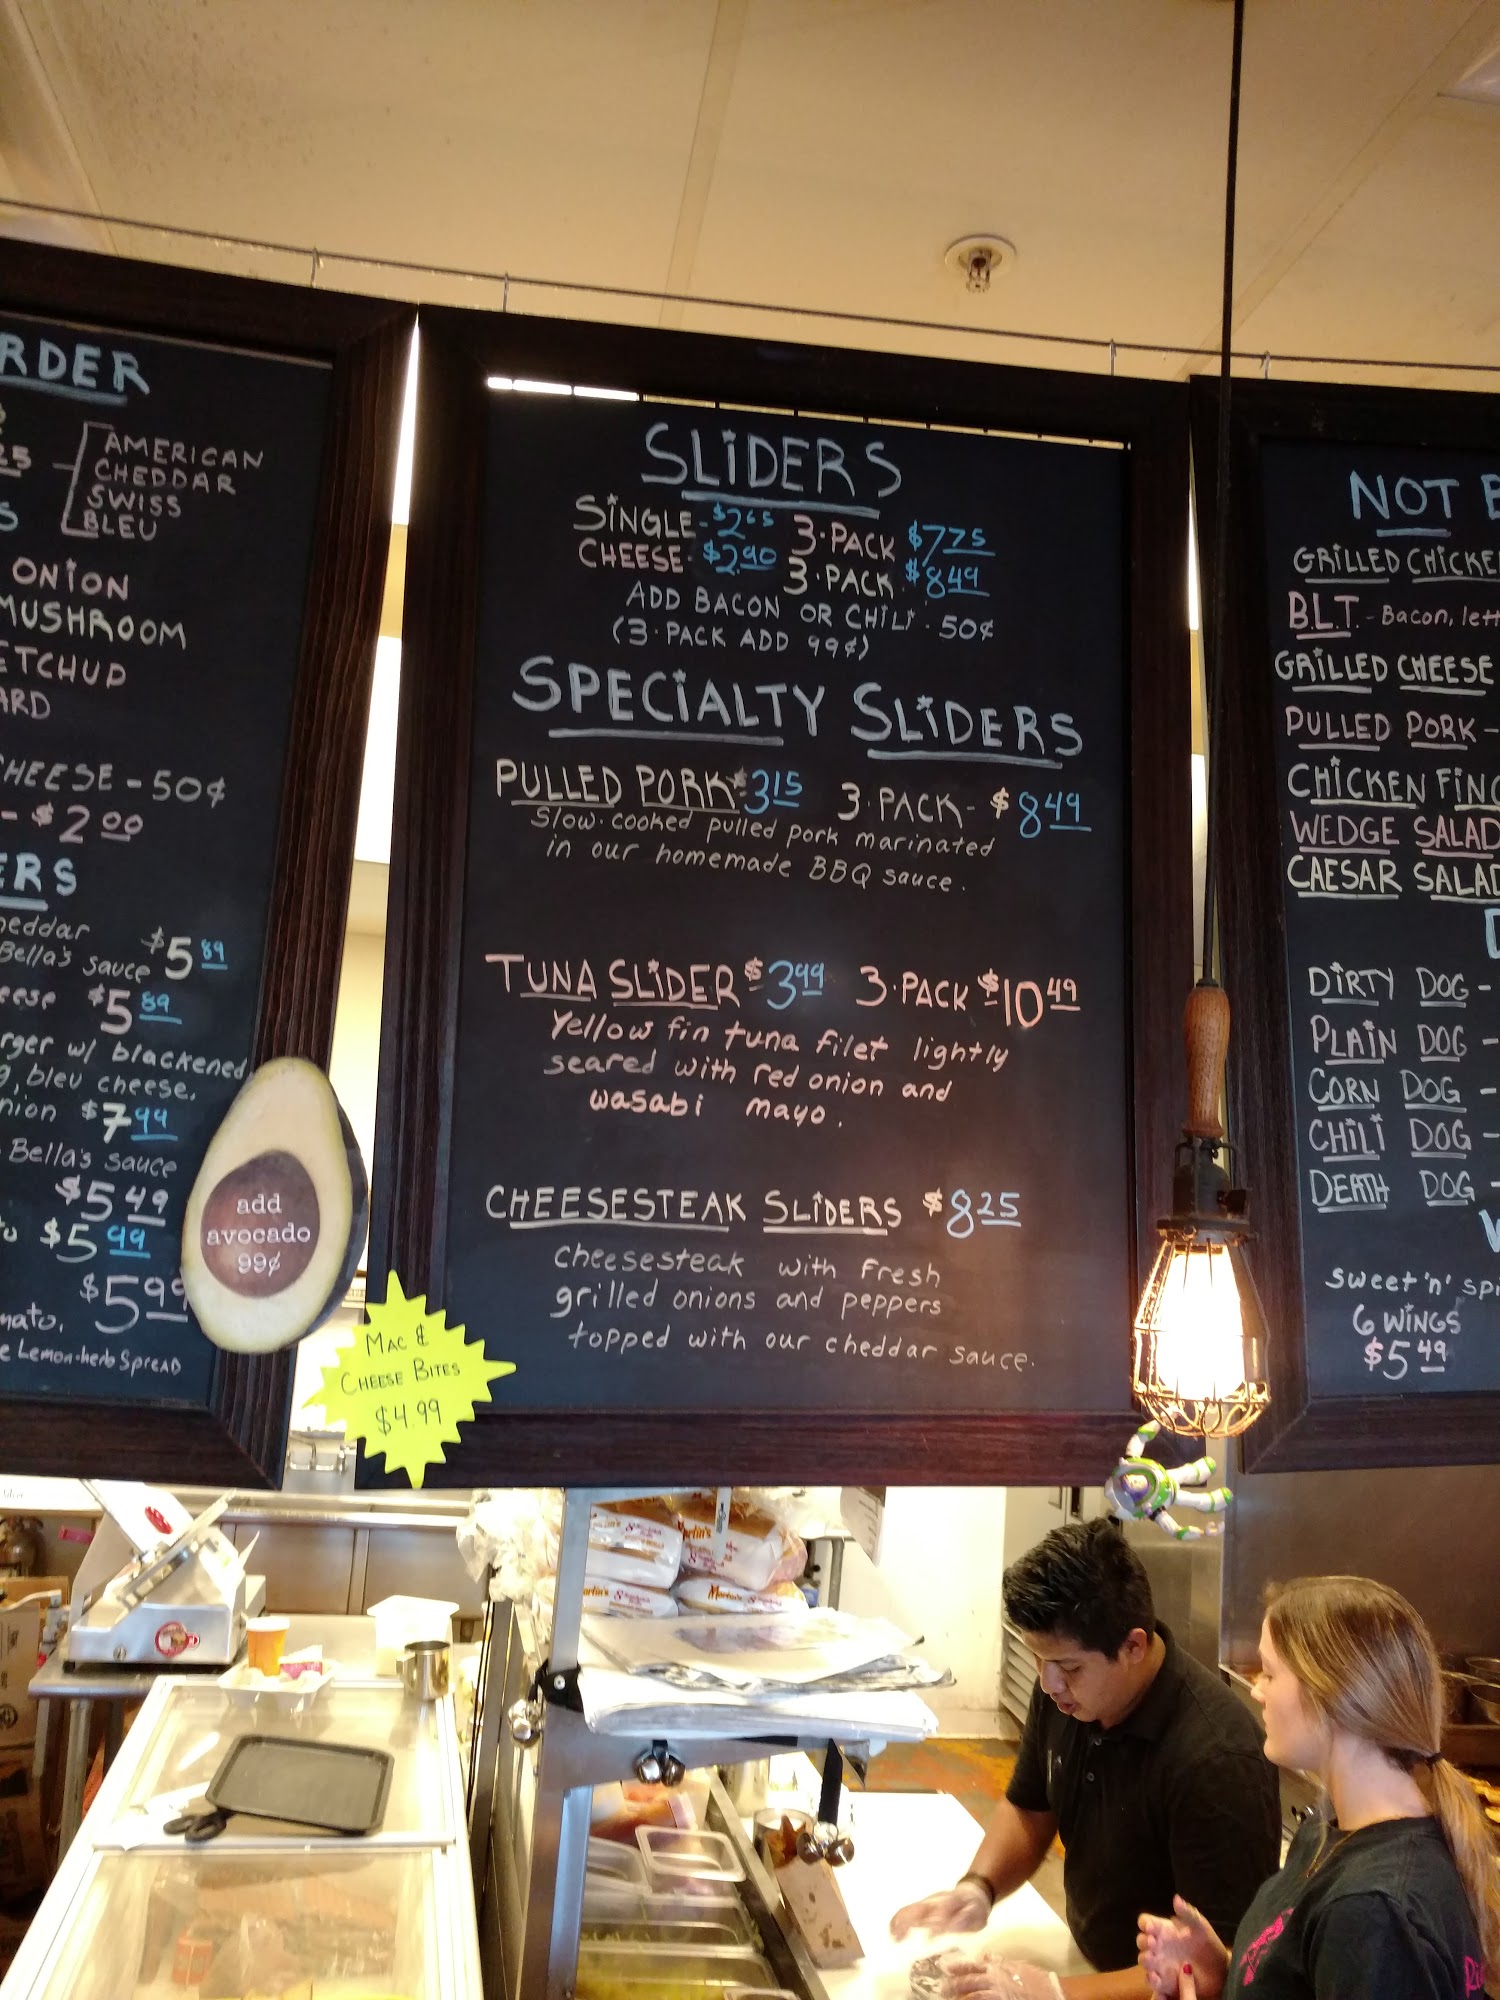 RDER
AMERICAN
CHEDDAR
SWISS
BLEU
ONION
MUSHROOM
ETCHUP
ARD
HEESE - 50¢
- $2 00
ERS
heddar
Bella's sauce $5 89
eese $5 89
rger w/ blackened
g, bleu cheese,
nion $7 99
Bella's sauce
$5 49
$5 99
$5 99
mato,
e Lemon-herb Spread
add
avocado
99¢
MAC &
CHEESE BITES
$4.99
SLIDERS
SINGLE - $2 65 3·PACK $7 75
CHEESE · $2.90 3·PACK · $8 49
ADD BACON OR CHILI · 50¢
(3·PACK ADD 99¢)
SPECIALTY SLIDERS
PULLED PORK $3 15 3·PACK - $8 49
Slow-cooked pulled pork marinated
in our homemade BBQ sauce.
TUNA SLIDER $3 99 3·PACK $10 49
Yellow fin tuna filet lightly
seared with red onion and
wasabi mayo.
CHEESESTEAK SLIDERS $8 25
cheesesteak with fresh
grilled onions and peppers
topped with our cheddar sauce.
NOT B
GRILLED CHICKE
B.L.T. - Bacon, lett
GRILLED CHEESE
PULLED PORK -
CHICKEN FING
WEDGE SALAD
CAESAR SALAD
DIRTY DOG -
PLAIN DOG -
CORN DOG -
CHILI DOG -
DEATH DOG -
sweet 'n' spi
6 WINGS
$5 49
Martin's
Martin's